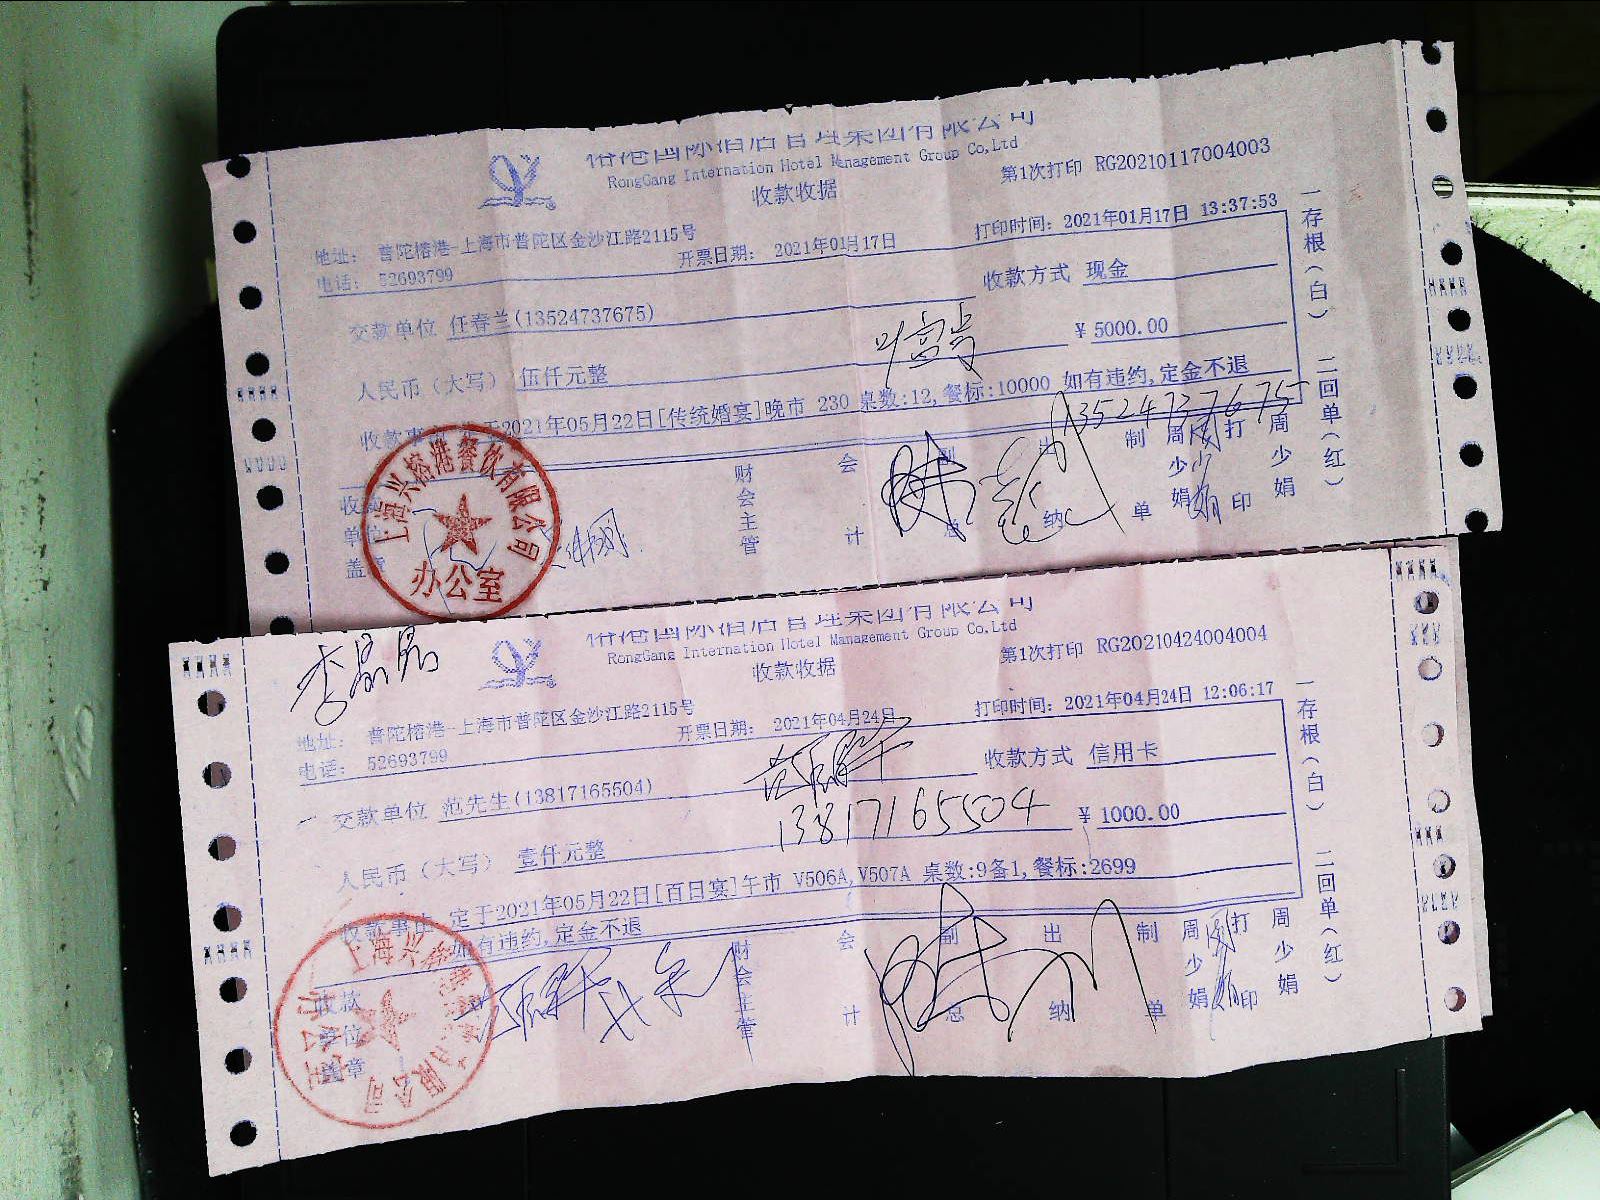 RongGang Internation Hotel Management Group Co,Ltd
收款收据
第1次打印 RG20210117004003
地址: 普陀榕港-上海市普陀区金沙江路2115号
电话: 52693799
开票日期: 2021年01月17日
打印时间: 2021年01月17日 13:37:53
交款单位 任春兰(13524737675)
收款方式 现金
人民币（大写） 伍仟元整
¥ 5000.00
2021年05月22日[传统婚宴]晚市 230 桌数:12,餐标:10000 如有违约,定金不退
13524737675
收款单位盖章
财会主管
会计
副总
出纳
制单
周少娟
打印
周少娟
一存根(白) 二回单(红)
上海兴榕港餐饮有限公司
办公室
RongGang Internation Hotel Management Group Co,Ltd
收款收据
第1次打印 RG20210424004004
地址: 普陀榕港-上海市普陀区金沙江路2115号
电话: 52693799
开票日期: 2021年04月24日
打印时间: 2021年04月24日 12:06:17
交款单位 范先生(13817165504)
收款方式 信用卡
13817165504
人民币（大写） 壹仟元整
¥ 1000.00
收款事由 定于2021年05月22日[百日宴]午市 V506A,V507A 桌数:9备1,餐标:2699
如有违约,定金不退
收款单位盖章
财会主管
会计
副总
出纳
制单
周少娟
打印
周少娟
一存根(白) 二回单(红)